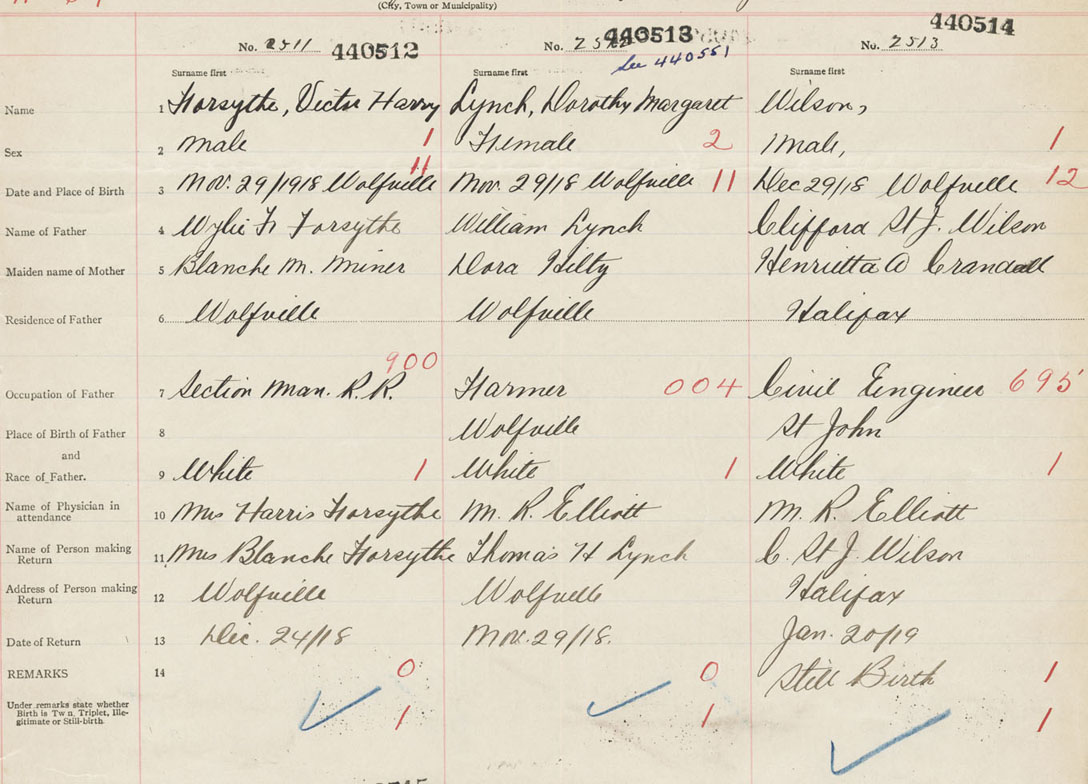 (City, Town or Municipality)
No. 2511 440512 No. 440513 No. 2513 440514
See 440551
Surname first Surname first Surname first
Name 1 Forsythe, Victor Harry Lynch, Dorothy Margaret Wilson,
Sex 2 Male 1 Female 2 Male, 1
11
Date and Place of Birth 3 Nov. 29/1918 Wolfville Nov. 29/18 Wolfville 11 Dec 29/18 Wolfville 12
Name of Father 4 Wylie F. Forsythe William Lynch Clifford St J. Wilson
Maiden name of Mother 5 Blanche M. Miner Dora Hilty Henrietta A Crandall
Residence of Father 6 Wolfville Wolfville Halifax
900
Occupation of Father 7 Section Man. R.R. Farmer 004 Civil Engineer 695
Place of Birth of Father 8 Wolfville St John
and
Race of Father. 9 White 1 White 1 White 1
Name of Physician in
attendance 10 Mrs Harris Forsythe M. R. Elliott M. R. Elliott
Name of Person making
Return 11 Mrs Blanche Forsythe Thomas H Lynch C. St J. Wilson
Address of Person making
Return 12 Wolfville Wolfville Halifax
Date of Return 13 Dec. 24/18 Nov. 29/18. Jan. 20/19
REMARKS 14 0 0 Still Birth 1
Under remarks state whether
Birth is Twin, Triplet, Ille-
gitimate or Still-birth 1 1 1